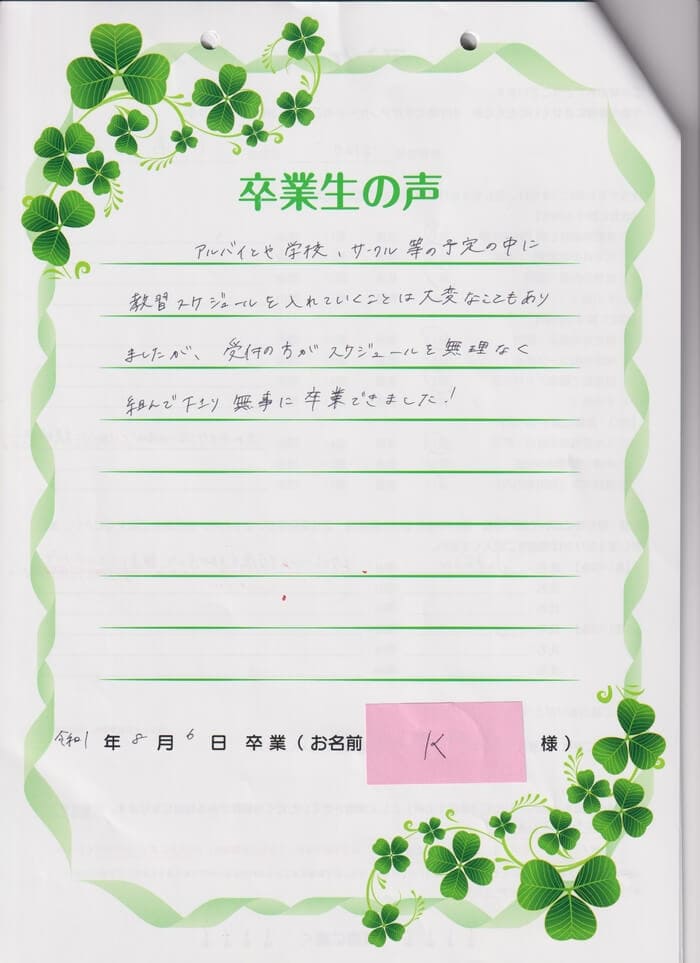 卒業生の声
アルバイトや学校、サークル等の予定の中に
教習スケジュールを入れていくことは大変なこともあり
ましたが、受付の方がスケジュールを無理なく
組んで下さり無事に卒業できました!
令和1年8月6日卒業(お名前 K 様)